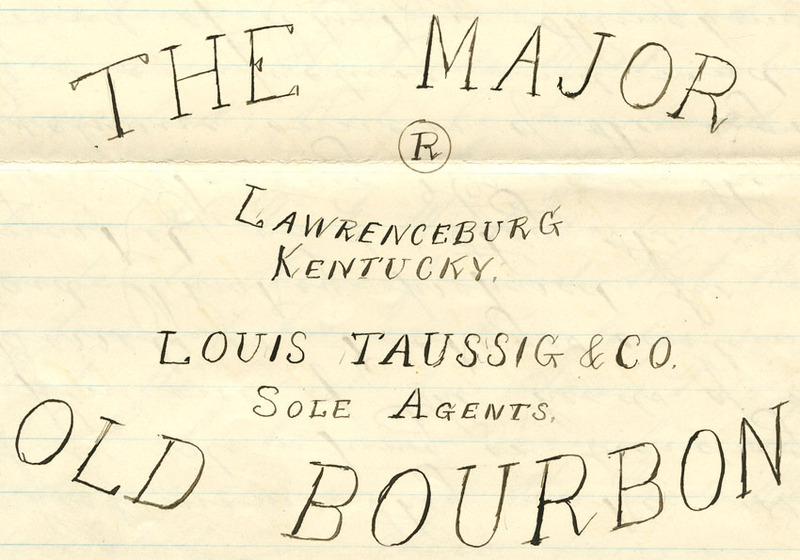 THE MAJOR
R
LAWRENCEBURG
KENTUCKY.
LOUIS TAUSSIG & CO.
SOLE AGENTS.
OLD BOURBON